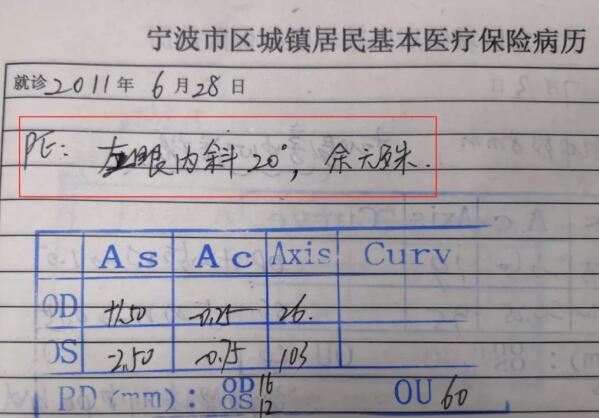 宁波市区城镇居民基本医疗保险病历
就诊2011年6月28日
PE: 左眼内斜20°, 余无殊.
As Ac Axis Curv
OD +1.50 -0.25 26
OS -2.50 -0.75 103
PD(mm): OD 16 OU 60
OS 12